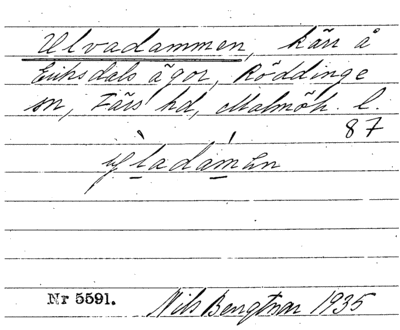 Ulvadammen, kärr å
Eriksdals ägor, Röddinge
sn, Färs hd, Malmöh. l.
87
Nr 5591. Nils Bengtsson 1935